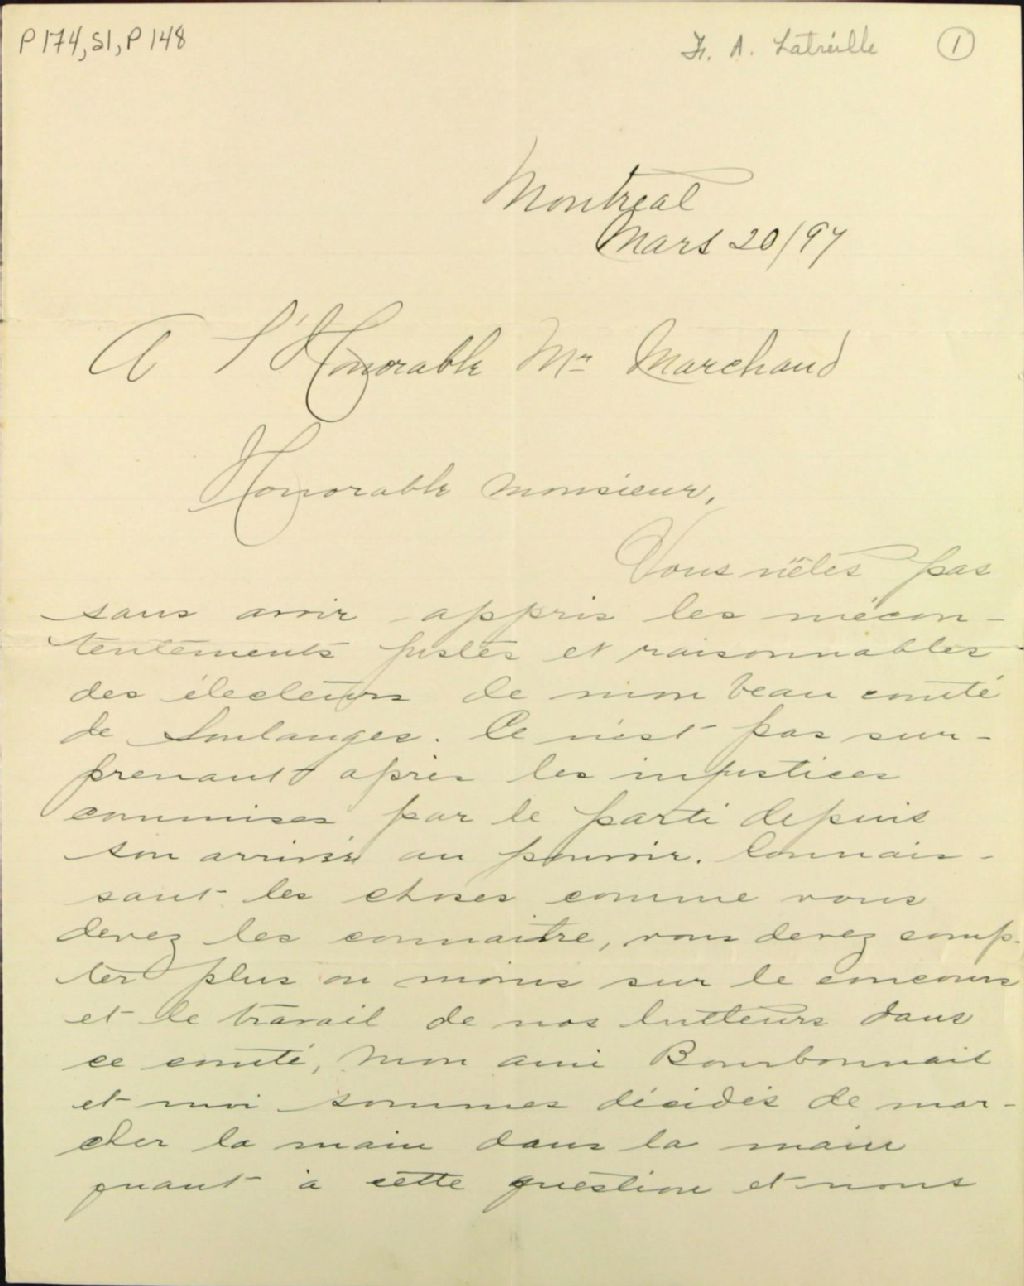 P174,S1,P148
Fr. A. Latreille 1
Montreal
Mars 20/97
A l'Honorable Mr Marchand
Honorable monsieur,
Vous n'êtes pas
sans avoir appris les mécon-
tentements justes et raisonnables
des électeurs de mon beau comté
de Soulanges. Ce n'est pas sur-
prenant après les injustices
commises par le parti depuis
son arrivée au pouvoir. Connais-
sant les choses comme vous
devez les connaitre, vous devez comp-
ter plus ou moins sur le concours
et le travail de nos lutteurs dans
ce comté, mon ami Bourbonnais
et moi sommes décidés de mar-
cher la main dans la main
quant à cette question et nous